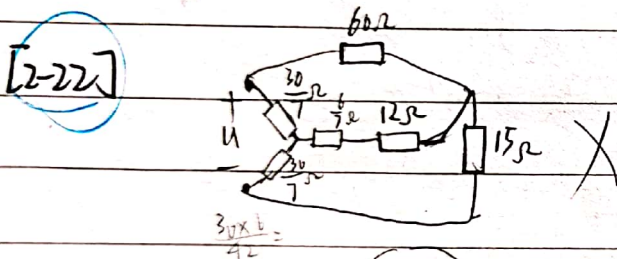 [2-22]
60Ω
30/7 Ω
6/7 Ω
12Ω
+
u
-
15Ω
30/7 Ω
30×6/42 =